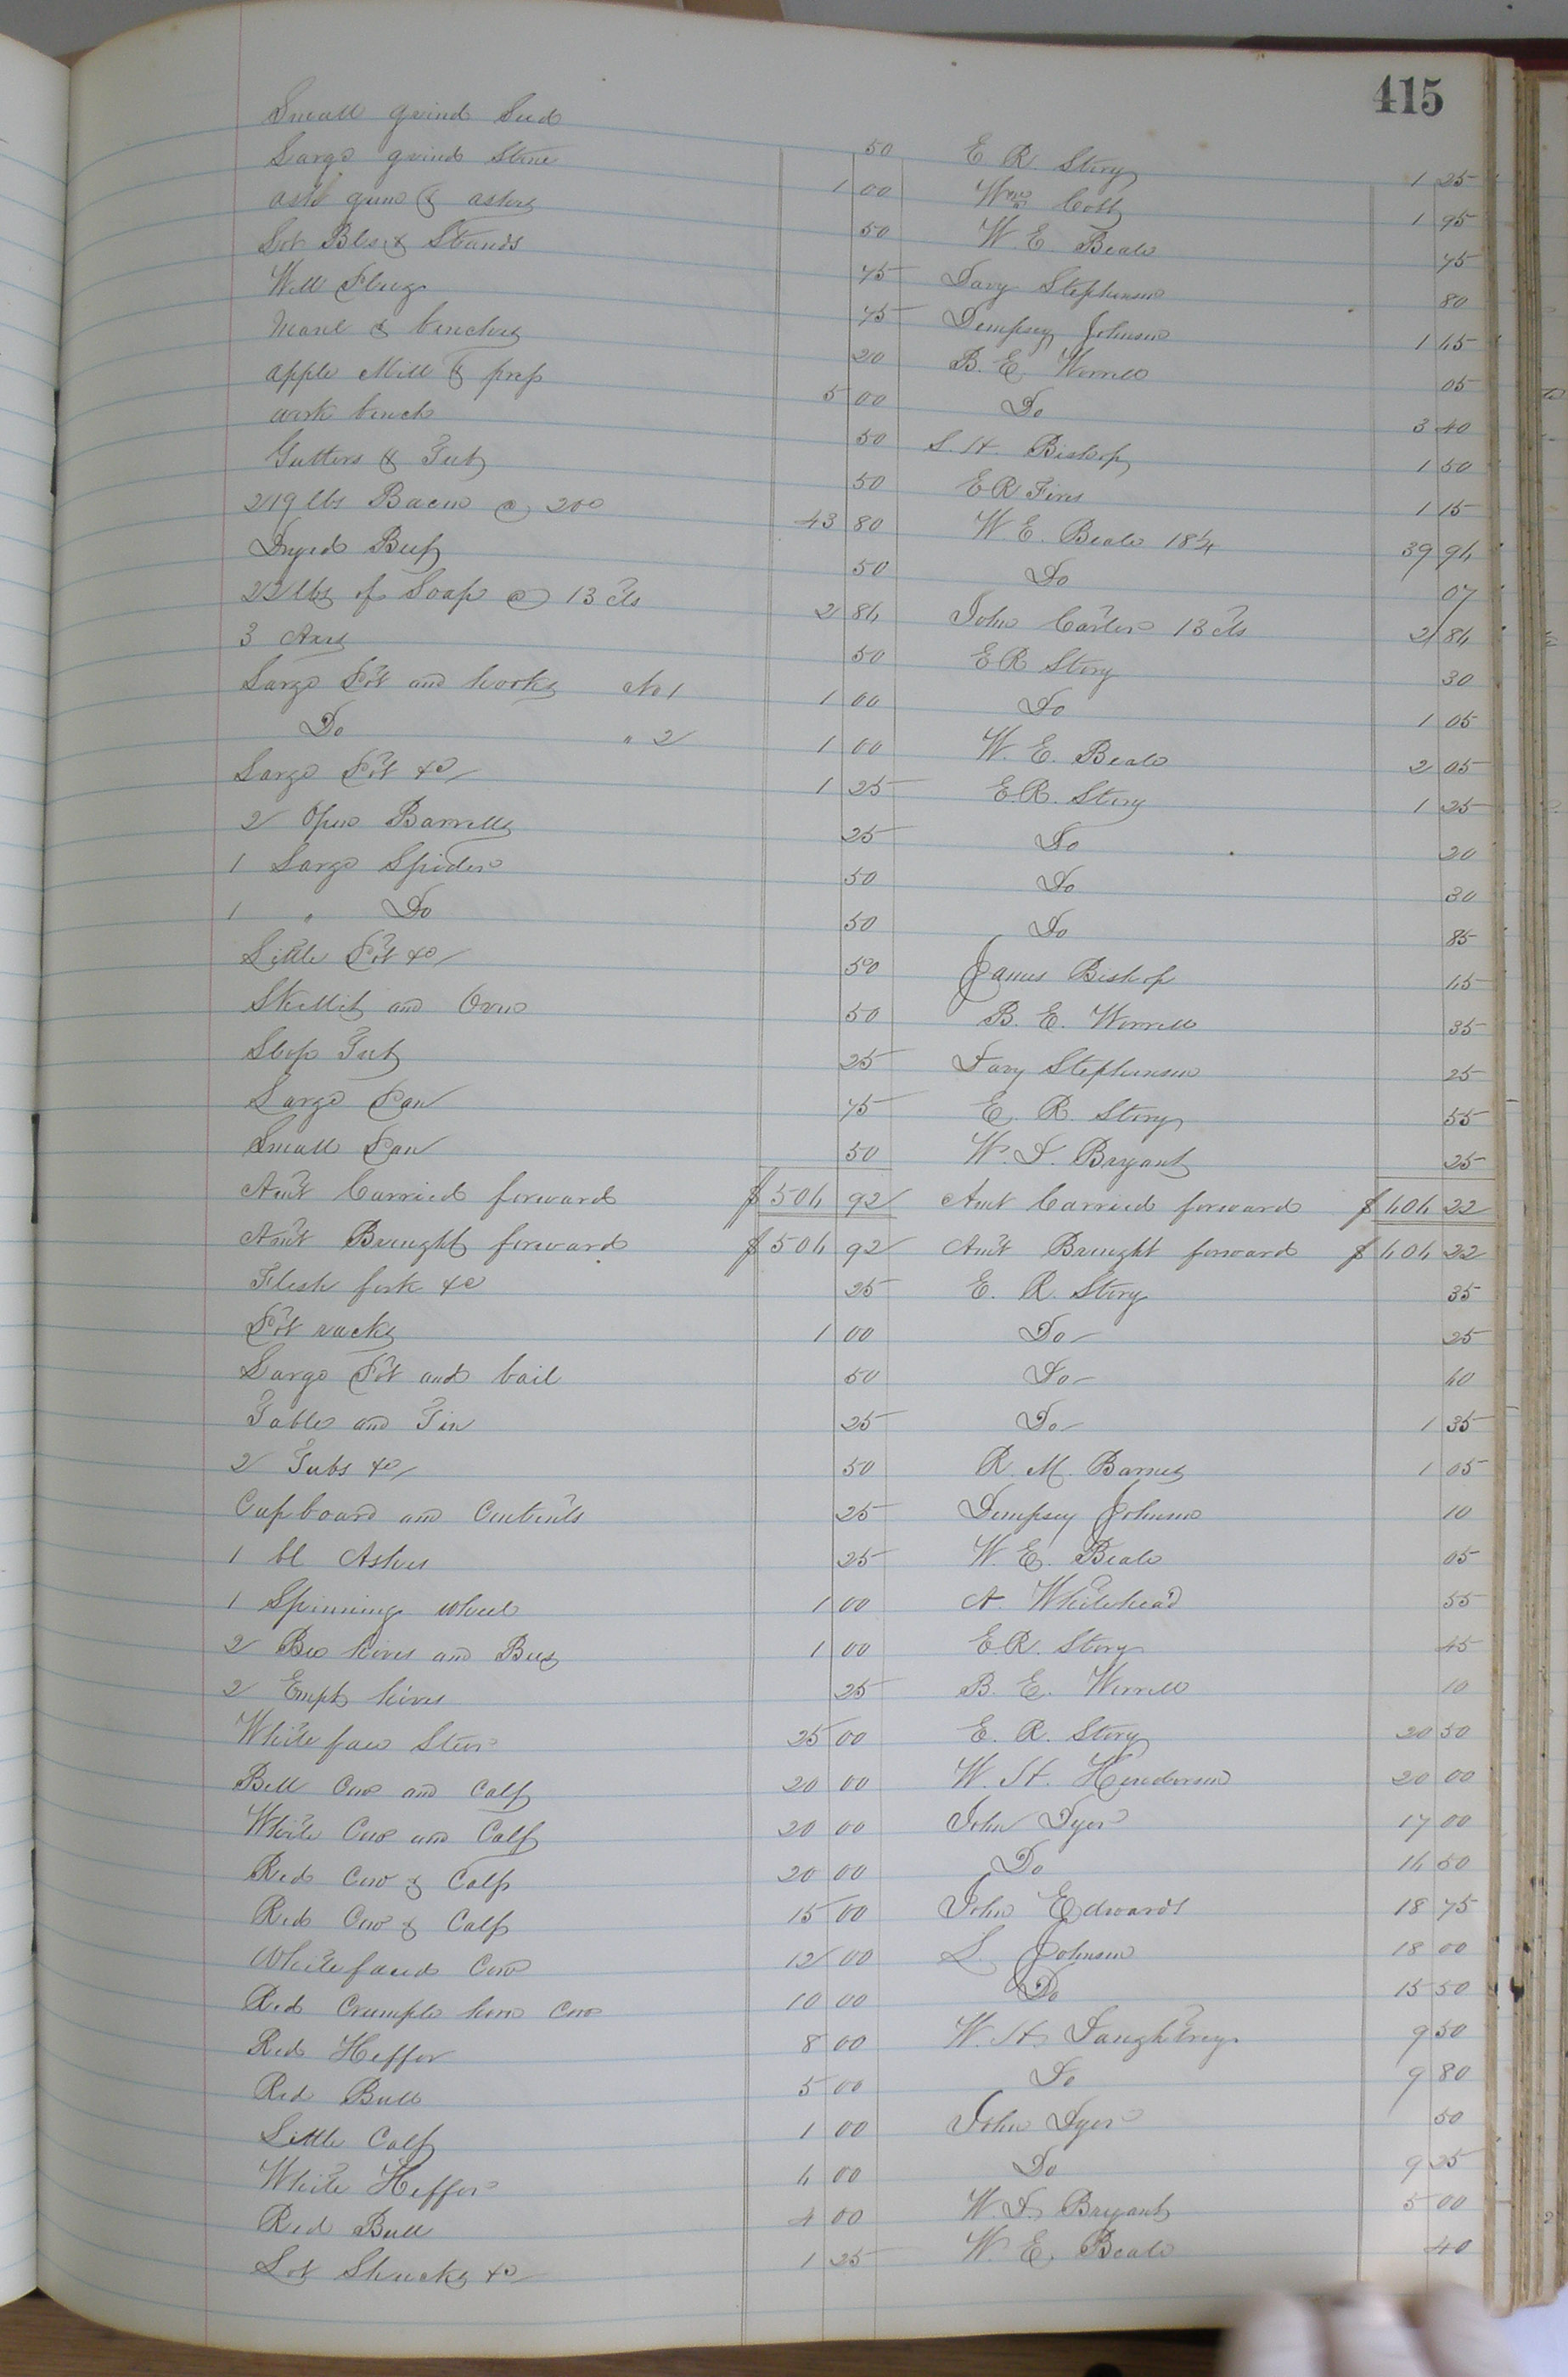 415
Small grind Sud 50 E R Story 1 25
Large grind Stone 1 00 Wm Cobb 1 95
ash gum & ashes 50 W. E. Beale 75
Lot Bls & Stands 75 Davy Stephenson 80
Well Plug 75 Dempsey Johnson 1 45
Maul & benches 20 B. E. Worrell 05
apple Mill & press 5 00 Do 3 40
work bench 50 S. H. Bishop 1 50
Gutters & Tub 50 E R Fires 1 15
219 lbs Bacon @ 20c 43 80 W. E. Beale 18¼ 39 94
Dryed Beef 50 Do 07
22 lbs of Soap @ 13 cts 2 84 John Carter 13 cts 2 84
3 Axes 50 E R Story 30
Large Pot and hooks No 1 1 00 Do 1 05
Do " 2 1 00 W. E. Beale 2 05
Large Pot &c 1 25 E. R. Story 1 25
2 Open Barrells 25 Do 20
1 Large Spider 50 Do 30
1 " Do 50 Do 85
Little Pot &c 50 James Bishop 45
Skillit and Oven 50 B. E. Worrell 35
Slop Tub 25 Davy Stephenson 25
Large Pan 75 E. R. Story 55
Small Pan 50 W. D. Bryant 25
Amt Carried forward $504 92 Amt Carried forward $404 22
Amt Brought forward $504 92 Amt Brought forward $404 22
Flesh fork &c 25 E. R. Story 35
Pot racks 1 00 Do 25
Large Pot and bail 50 Do 40
Table and Tin 25 Do 1 35
2 Tubs &c 50 R. M. Barnes 1 05
Cupboard and Contents 25 Dempsey Johnson 10
1 bl Ashes 25 W. E. Beale 05
1 Spinning wheel 1 00 A. Whitehead 55
2 Bee hives and Bees 1 00 E. R. Story 45
2 Empt hives 25 B. E. Worrell 10
White face Steer 25 00 E. R. Story 20 50
Bell Cow and Calf 20 00 W. H. Henderson 20 00
White Cow and Calf 20 00 John Dyer 17 00
Red Cow & Calf 20 00 Do 14 50
Red Cow & Calf 15 00 John Edwards 18 75
White faced Cow 12 00 S. Johnson 18 00
Red Crumple horn Cow 10 00 Do 15 50
Red Heffer 8 00 W. H. Daughtrey 9 50
Red Bull 5 00 Do 9 80
Little Calf 1 00 John Dyer 50
White Heffer 4 00 Do 9 25
Red Bull 4 00 W. D. Bryant 5 00
Lot Shucks &c 1 25 W. E. Beale 40